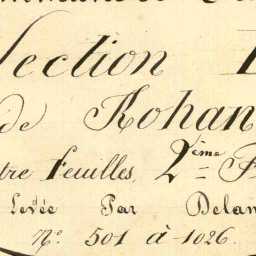 Section
de Rohan
tre feuilles. 2ème F
Levée Par Delam
N° 501 à 1026.